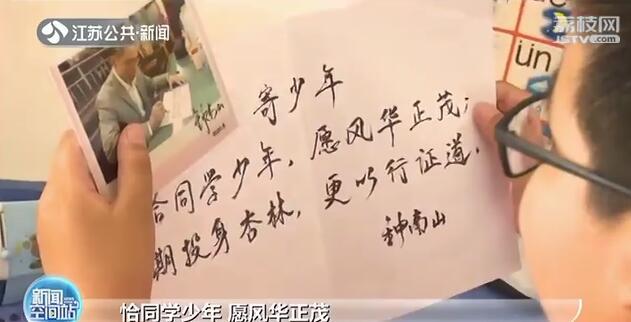 江苏公共·新闻
荔枝网
JSTV.com
寄少年
恰同学少年，愿风华正茂；
期投身杏林，更以行证道。
钟南山
üe
ün
新闻
空间站
恰同学少年 愿风华正茂